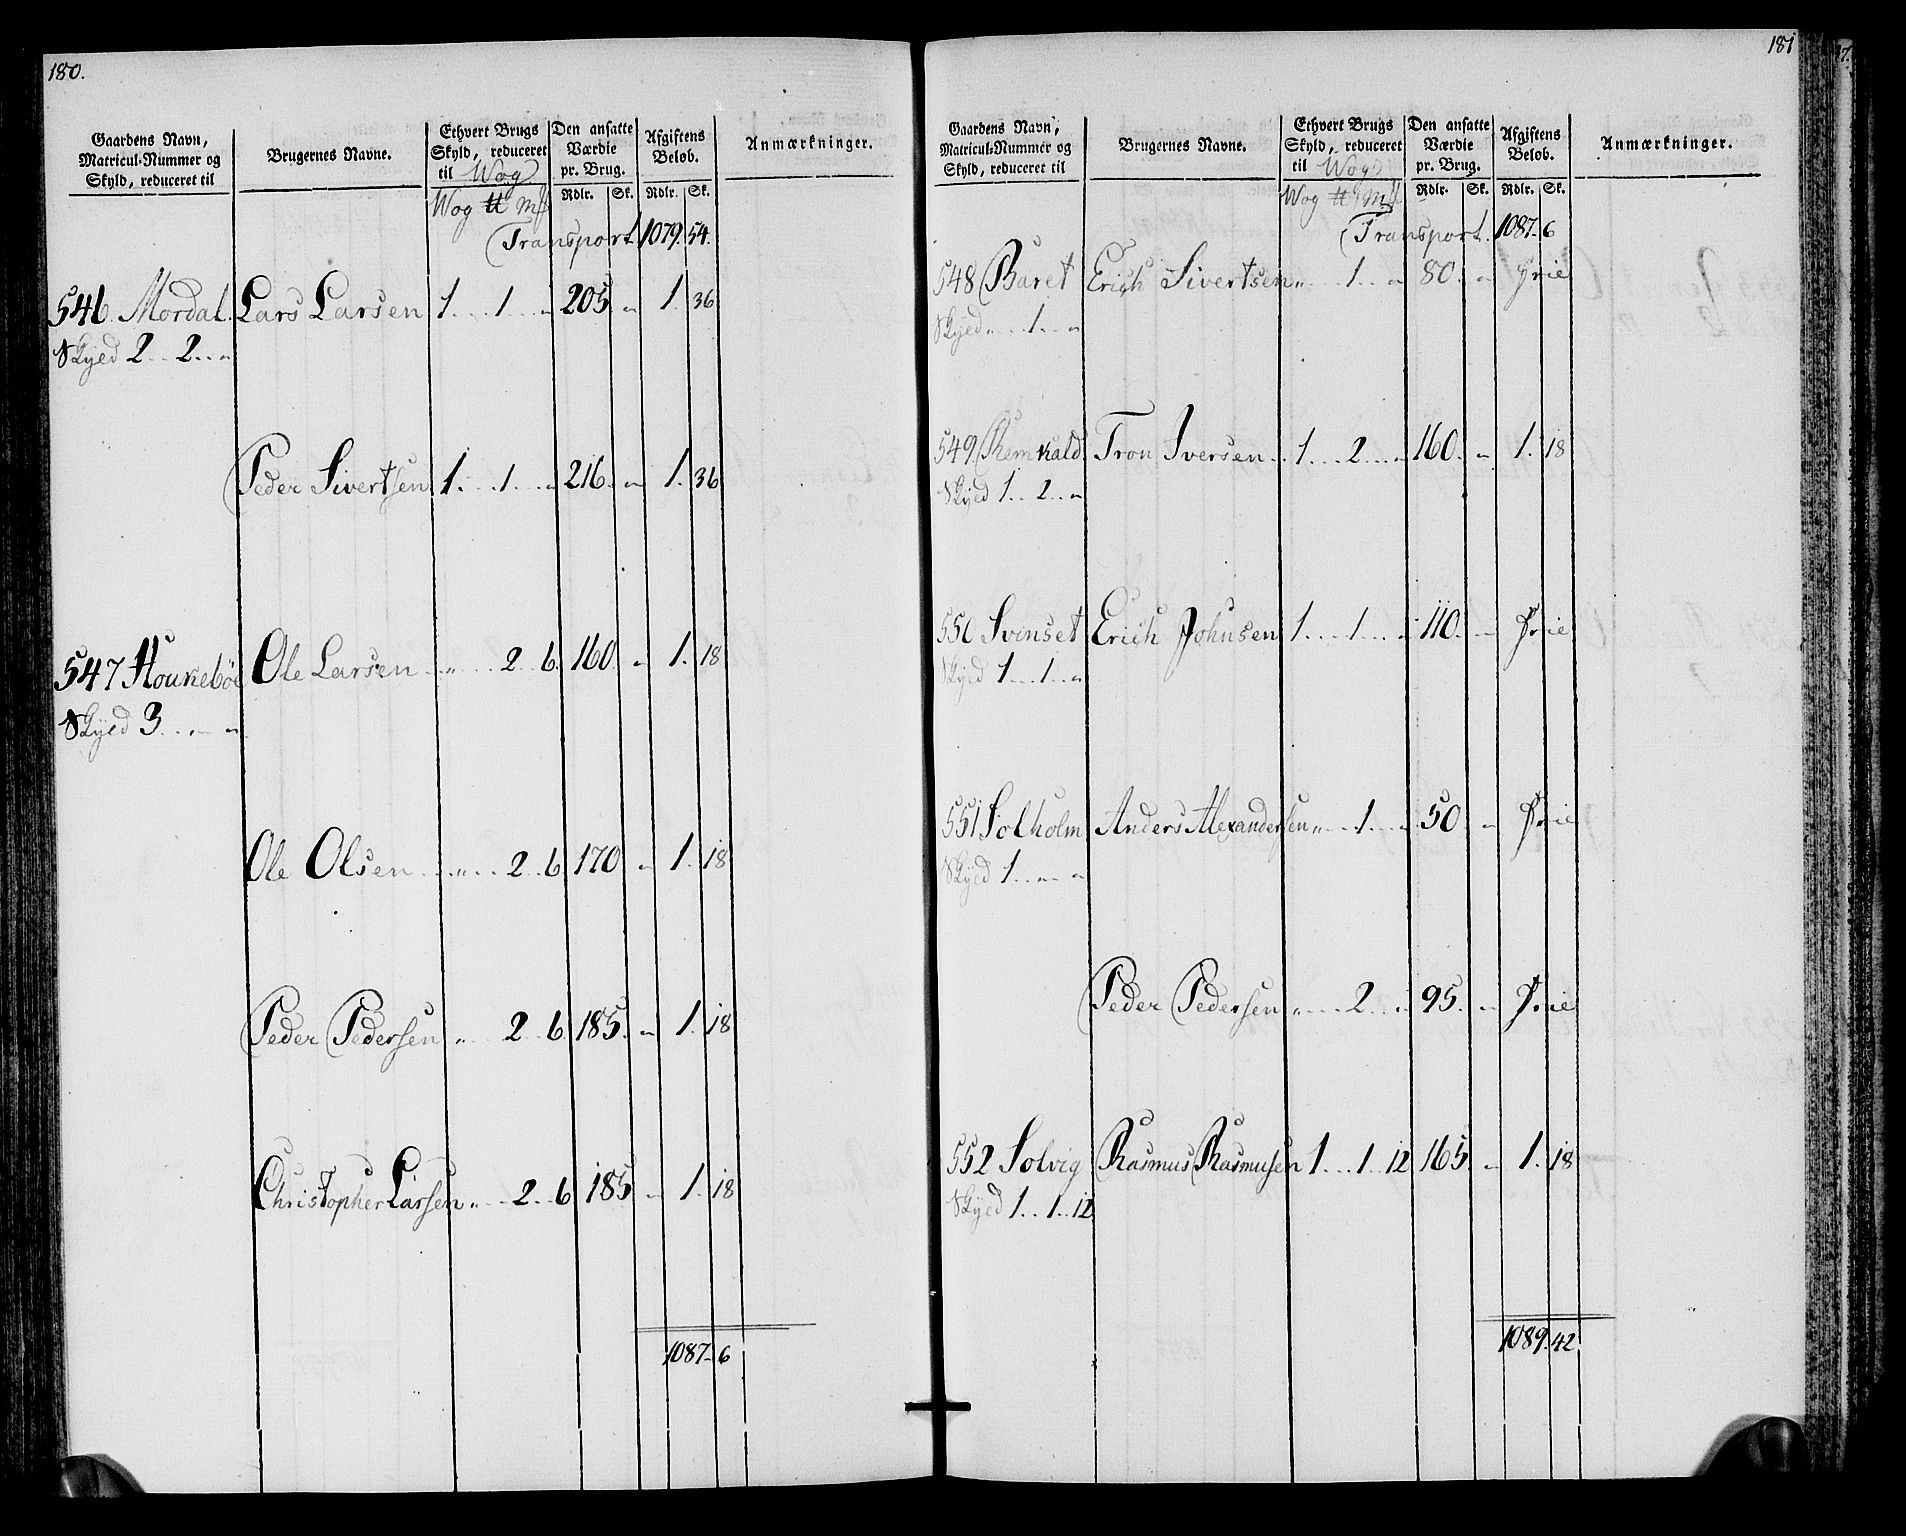 180.
Gaardens Navn, Matricul-Nummer og Skyld, reduceret til
Brugernes Navne.
Ethvert Brugs Skyld, reduceret til Wog
Den ansatte Værdie pr. Brug.
Afgiftens Beløb.
Anmærkninger.
Rdlr. Sk. Rdlr. Sk.
Wog
Transport 1079. 54.
546. Mordal. Lars Larsen 1 .... 1 .. " 205 " 1. 36
Skyed 2 .. 2 .. "
Peder Sivertsen 1. ... 1 ... " 216. " 1. 36
547 Houkebøe Ole Larsen " ... 2 .. 6. 160. " 1. 18
Skyed 3 . . " "
Ole Olsen " ... 2 .. 6 170 " 1. 18
Peder Pedersen " ... 2 .. 6 185. " 1. 18
Christopher Larsen " .. 2 .. 6 185 " 1. 18
1087. 6
181
Gaardens Navn, Matricul-Nummer og Skyld, reduceret til
Brugernes Navne.
Ethvert Brugs Skyld, reduceret til Wog
Den ansatte Værdie pr. Brug.
Afgiftens Beløb.
Anmærkninger.
Rdlr. Sk. Rdlr. Sk.
Wog
Transport. 1087. 6
548 Baret Erich Sivertsen " ... 1 .. " 80. " Frie
Skyed " ... 1 .. "
549 Tron Iversen 1 .... 2 ... " 160. " 1. 18
Skyed 1 .. 2 .. "
550 Svinset Erich Johnsen 1 .... 1 .... " 110. " Frie
Skyed 1 ... 1 .. "
551 Solholm Anders Alexandersen " ... 1 ... " 50 " Frie
Skyed 1 .. " "
Peder Pedersen " .... 2 ... " 95. " Frie
552 Solvig Rasmus Rasmusen 1 ... 1 .. 12 165 " 1. 18
Skyed 1 .. 1 .. 12
1089. 42